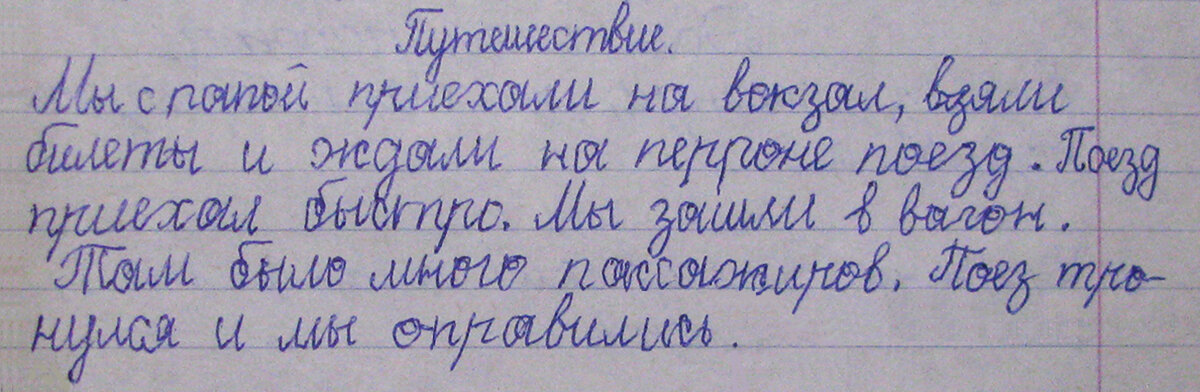 Путешествие.
Мы с папой приехали на вокзал, взяли
билеты и ждали на перроне поезд. Поезд
приехал быстро. Мы зашли в вагон.
Там было много пассажиров. Поез тро-
нулся и мы оправились.